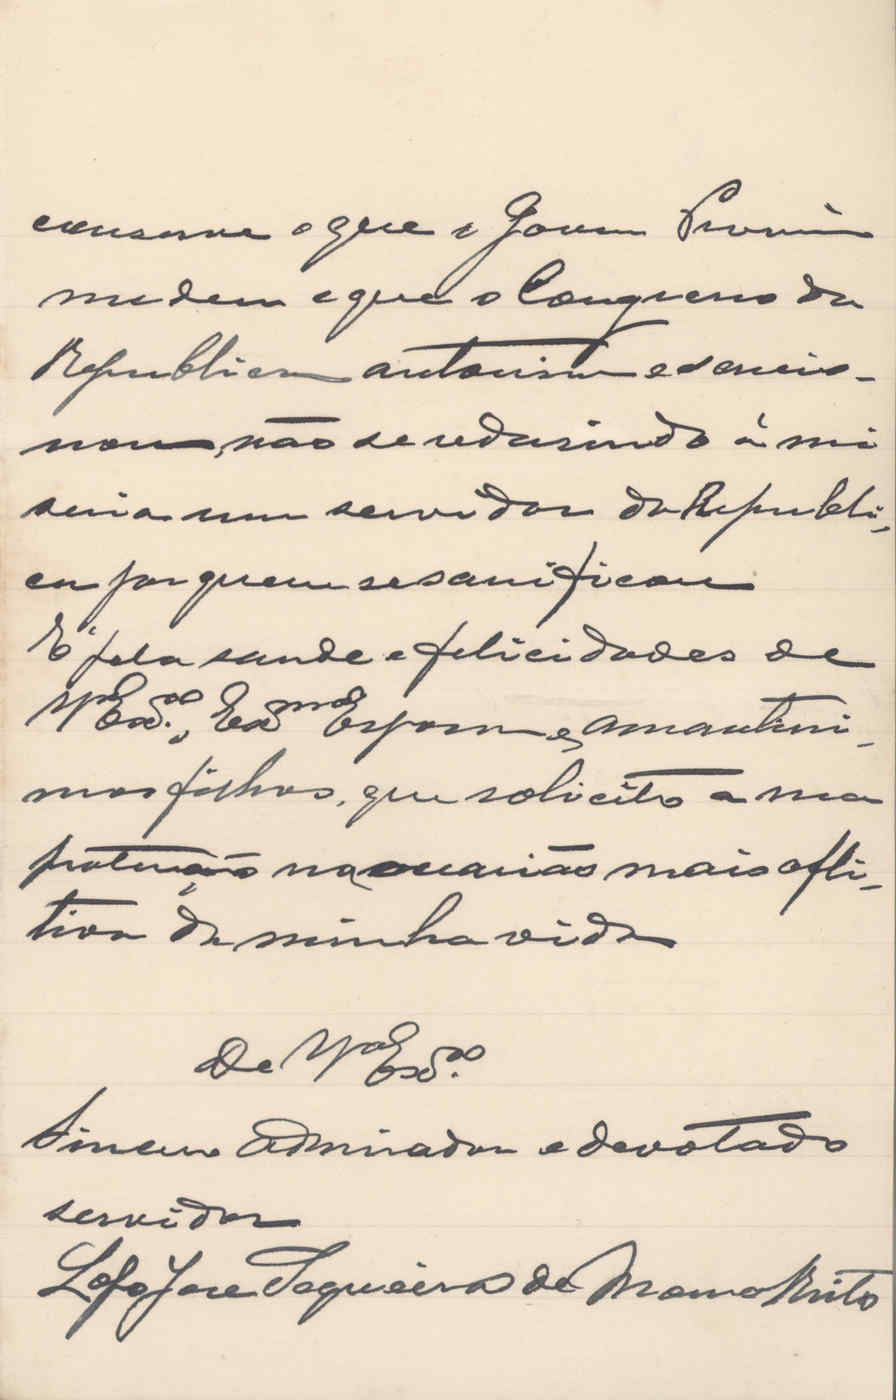 conserve o que o Govern Provin
medem e que o Congresso da
Republica autorisou e sancio-
nou, não se redusindo á mi
seria um servidor da Republi,
ca por quem se sacrificou
É pela saude e felicidades de
Vª Exª, Exmª Esposa e amantissi-
mos filhos, que solicito a sua
protecção na occasião mais affli-
tiva da minha vida
De Vª Exª
Sincero admirador e devotado
servidor
José Segueira de Brito